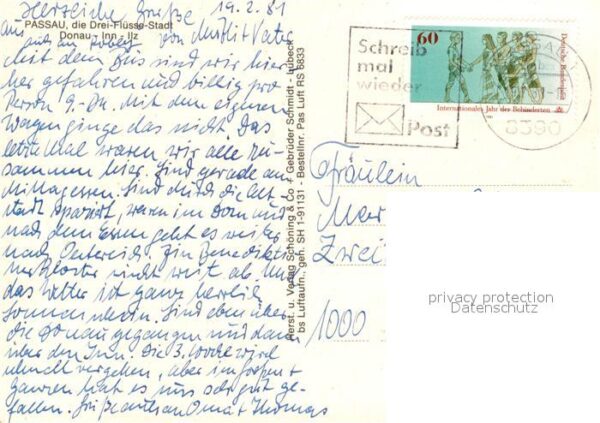 Herzliche Grüße 19.2.81
PASSAU, die Drei-Flüsse-Stadt
Donau - Inn - Ilz
von Mutti + Vater
mit dem Bus sind wir hier
her gefahren und billig pro
Person 9.- DM. Mit dem eigenen
Wagen ginge das nicht. Das
letzte Mal waren wir alle zu-
sammen hier. Sind gerade am
Mittagessen. Sind durch die Alt-
stadt spaziert, waren im Dom und
nach dem Essen geht es weiter
nach Österreich. Ein Benedikti-
ner Kloster nicht weit ab.
das Wetter ist ganz herrlich
Sonnenschein. Sind eben über
die Donau gegangen und dann
über den Inn. Die 3. Woche wird
schnell vergehen, aber im großen +
ganzen hat es uns sehr gut ge-
fallen. Grüße auch an Oma + Thomas
Perst. u. Verlag Schöning & Co. + Gebrüder Schmidt - Lübeck
bs Luftaufn., geh. SH 1-91131 - Bestellnr. Pas Luft RS 8833
Schreib
mal
wieder
Post
60
Deutsche Bundespost
Internationales Jahr der Behinderten
8390
Fräulein
Mar
Zwei
1000
privacy protection
Datenschutz